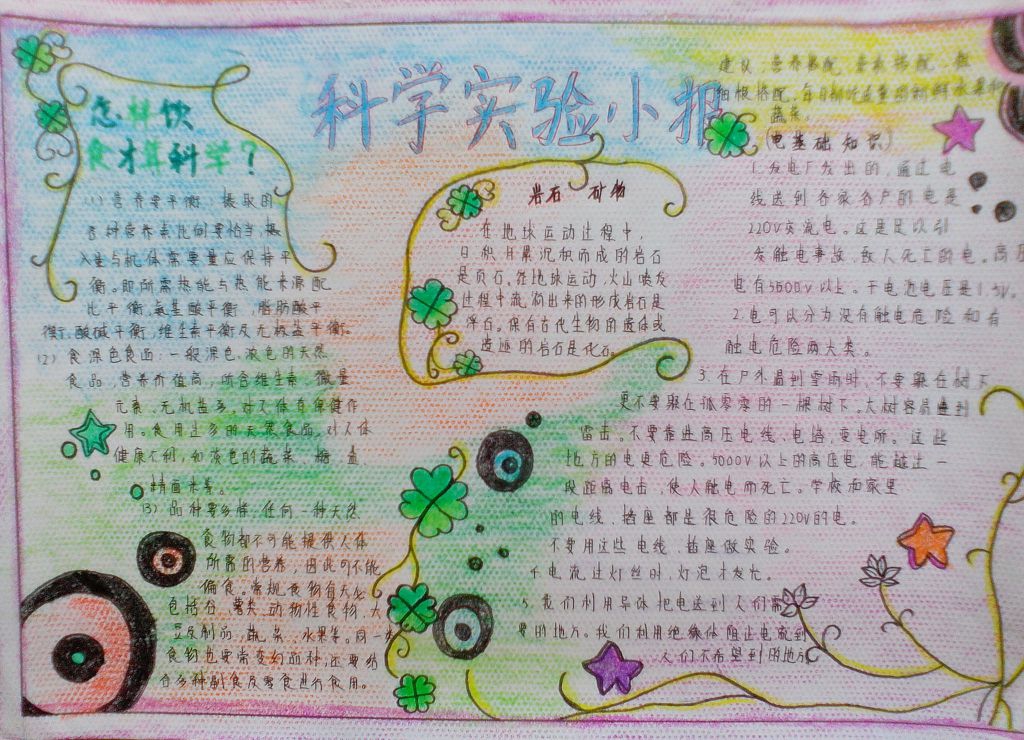 科学实验小报
怎样饮
食才算科学？
(1) 营养要平衡，摄取的
各种营养素比例要恰当,摄
入量与机体需要量应保持平
衡。即所需热能与热能来源配
比平衡,氨基酸平衡，脂肪酸平
衡,酸碱平衡,维生素平衡及无机盐平衡。
(2) 食深色食品:一般深色,浓色的天然
食品,营养价值高,所含维生素、微量
元素、无机盐多,对人体有保健作
用。食用过多的天然食品,对人体
健康不利,如淡色的蔬菜、糖、盐
精面米等。
(3) 品种要多样:任何一种天然
食物都不可能提供人体
所需的营养,因此可不能
偏食。常规食物有大必
包括谷、薯类、动物性食物、大
豆及制品,蔬菜、水果等。同一
食物也要常变幻品种,还要结
合多种副食及零食进行食用。
岩石 矿物
在地球运动过程中,
日积月累沉积而成的岩石
是页石。在地球运动,火山喷发
过程中流淌出来的形成岩石是
浮石。保有古代生物的遗体或
遗迹的岩石是化石。
建议:营养搭配,荤素搭配,粗
细粮搭配,每日都吃适量的新鲜水果和
蔬菜。
(电基础知识)
1.发电厂发出的,通过电
线送到各家各户的电是
220V交流电。这是足以引
发触电事故,致人死亡的电。高压
电有5000V以上。干电池电压是1.5V。
2.电可以分为没有触电危险和有
触电危险两大类。
3.在户外遇到雷雨时,不要躲在树下
更不要躲在孤零零的一棵树下。大树容易遭到
雷击。不要靠近高压电线、电塔,变电所。这些
地方的电更危险。5000V以上的高压电,能越过一
段距离电击,使人触电而死亡。学校和家里
的电线、插座都是很危险的220V的电。
不要用这些电线、插座做实验。
4.电流过灯丝时,灯泡才发光。
5.我们利用导体把电送到人们需
要的地方。我们利用绝缘体阻止电流到
人们不希望到的地方